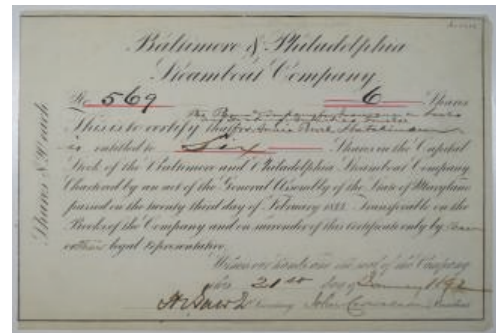 Baltimore & Philadelphia
Steamboat Company
No 569 6 Shares
This is to certify that
is entitled to Six Shares in the Capital
Stock of the Baltimore and Philadelphia Steamboat Company
Chartered by an act of the General Assembly of the State of Maryland
passed on the twenty third day of February 1844. Transferable on the
Books of the Company and on surrender of this Certificate only by
or legal representative.
Witness our hands and the seal of the Company
this 21st day of January 1892
John President
Shares $ each